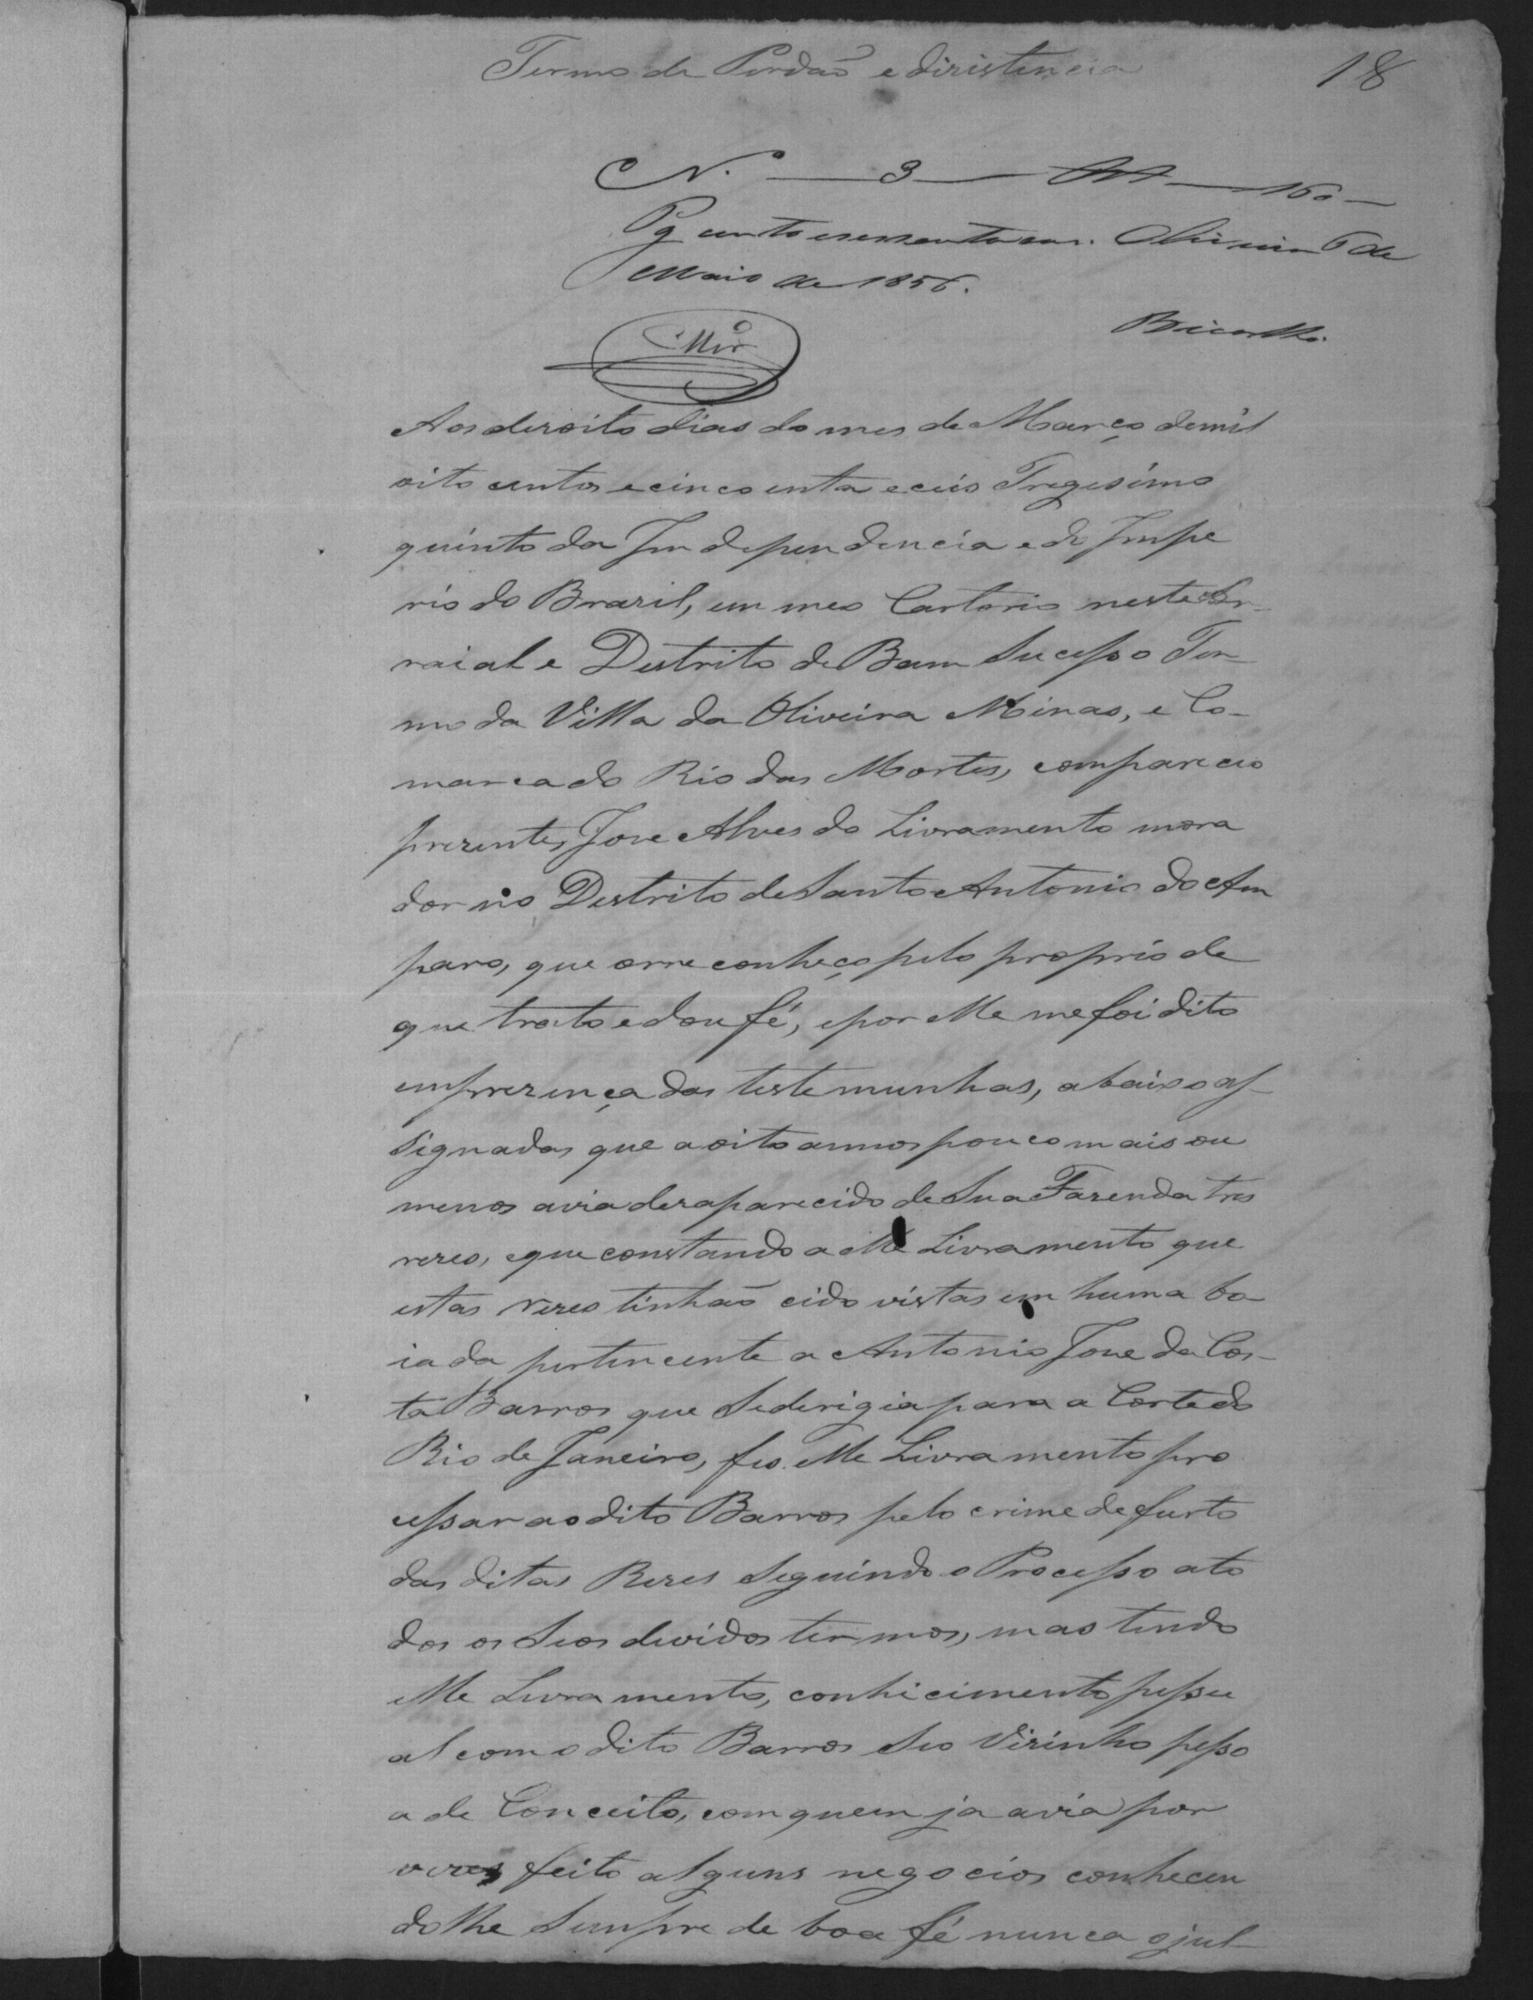 Termo de Perdaõ e diristencia 18
N.º — 3 — — 160 —
Pg cento e sessenta reis. Oliveira 6 de
Maio de 1856.
Bicalho.
Aos deroito dias do mes de Março de mil
oito centos e cincoenta e ceis Tregesimo
quinto da Independencia e do Impe
rio do Brazil, em meo Cartorio neste Ar-
raial e Destrito de Bam Sucesso Ter
mo da Villa da Oliveira Minas, e Co-
marca do Rio das Mortes, compareceo
prezente, Jose Alves do Livramento mora
dor no Destrito de Santo Antonio do Am
paro, que orreconheço pelo proprio de
que trato e dou fé, e por elle me foi dito
em prezença das testemunhas, abaixo as-
signadas que a oito annos pouco mais ou
menos avia dezaparecido de Sua Fazenda tres
rezes, e que constando a elle Livramento que
estas rezes tinhaõ cido vistas em huma bo
iada pertencente a Antonio Jose da Cos-
ta Barros que Sederigia para a Corte do
Rio de Janeiro, fes elle Livramento pro
cessar ao dito Barros pelo crime de furto
das ditas Rezes Seguindo o Processo a to
dos os Seos devidos termos, mas tendo
elle Livramento, conhicimento pessu
al com o dito Barros Seo Vizinho pesso
a de Conceito, com quem ja avia por
vezes feito alguns negocios conhecen
dolhe Sempre de boa fé nunca ojul-